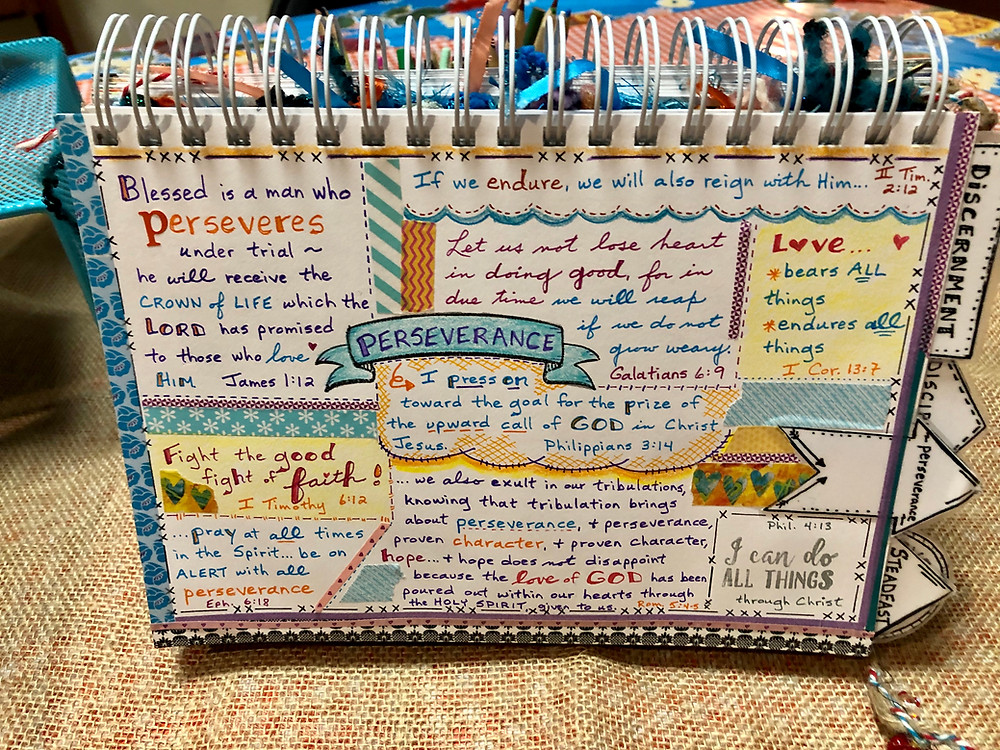 Blessed is a man who
perseveres
under trial ~
he will receive the
CROWN of LIFE which the
LORD has promised
to those who love
HIM James 1:12
If we endure, we will also reign with Him... II Tim.
2:12
Let us not lose heart
in doing good, for in
due time we will reap
if we do not
grow weary.
Galatians 6:9
Love...
*bears ALL
things
*endures all
things
I Cor. 13:7
PERSEVERANCE
I press on
toward the goal for the prize of
the upward call of GOD in Christ
Jesus. Philippians 3:14
Fight the good
fight of faith!
I Timothy 6:12
...pray at all times
in the Spirit... be on
ALERT with all
perseverance
Eph. 6:18
...we also exult in our tribulations,
knowing that tribulation brings
about perseverance, + perseverance,
proven character, + proven character,
hope... + hope does not disappoint
because the love of GOD has been
poured out within our hearts through
the HOLY SPIRIT given to us. Rom. 5:4-5
Phil. 4:13
I can do
ALL THINGS
through Christ
DISCERNMENT
DISCIPL
perseverance
STEADFAST